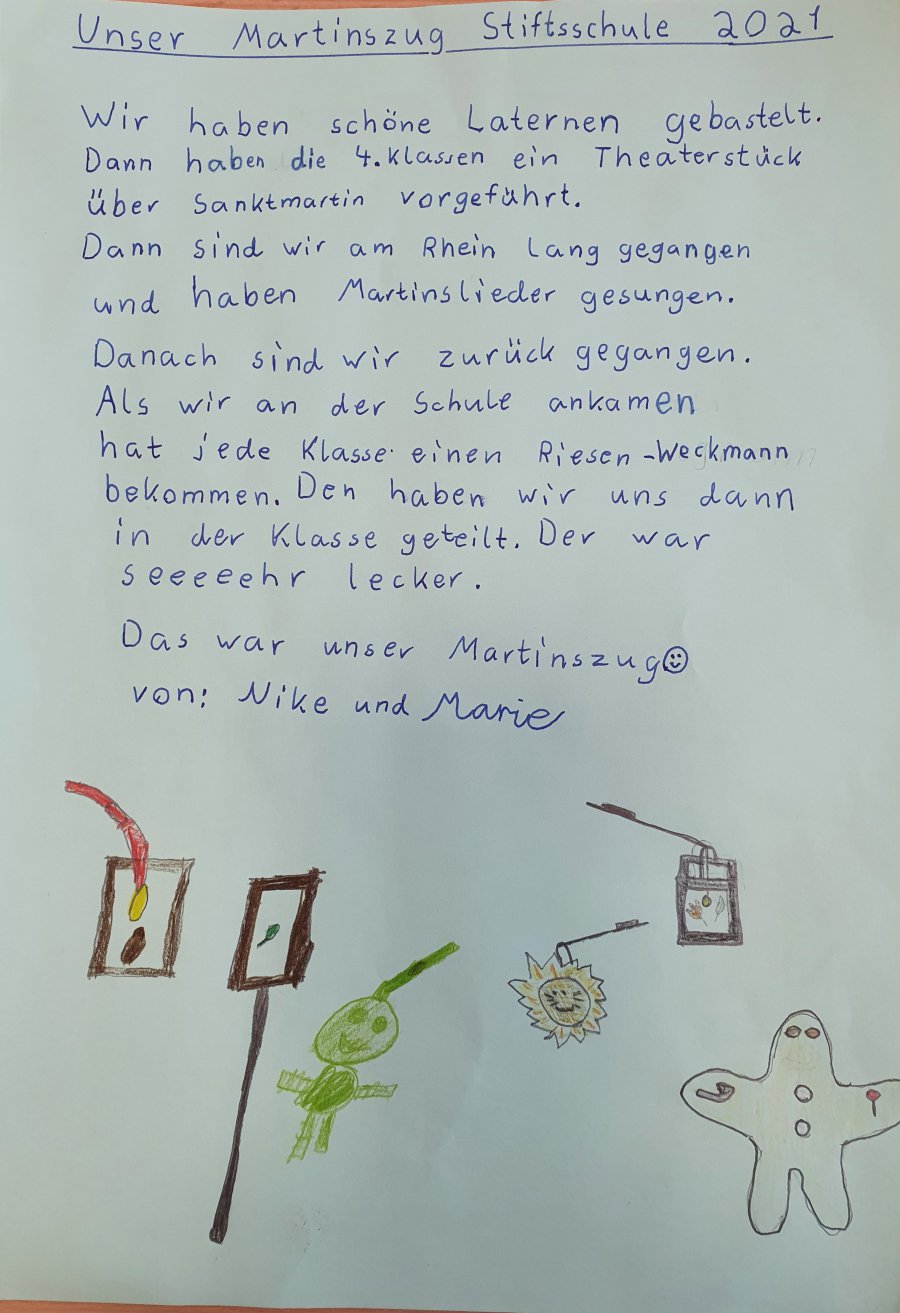 Unser Martinszug Stiftsschule 2021
Wir haben schöne Laternen gebastelt.
Dann haben die 4. Klassen ein Theaterstück
über Sanktmartin vorgeführt.
Dann sind wir am Rhein Lang gegangen
und haben Martinslieder gesungen.
Danach sind wir zurück gegangen.
Als wir an der Schule ankamen
hat jede Klasse einen Riesen-Weckmann
bekommen. Den haben wir uns dann
in der Klasse geteilt. Der war
seeeeehr lecker.
Das war unser Martinszug☺
von: Nike und Marie